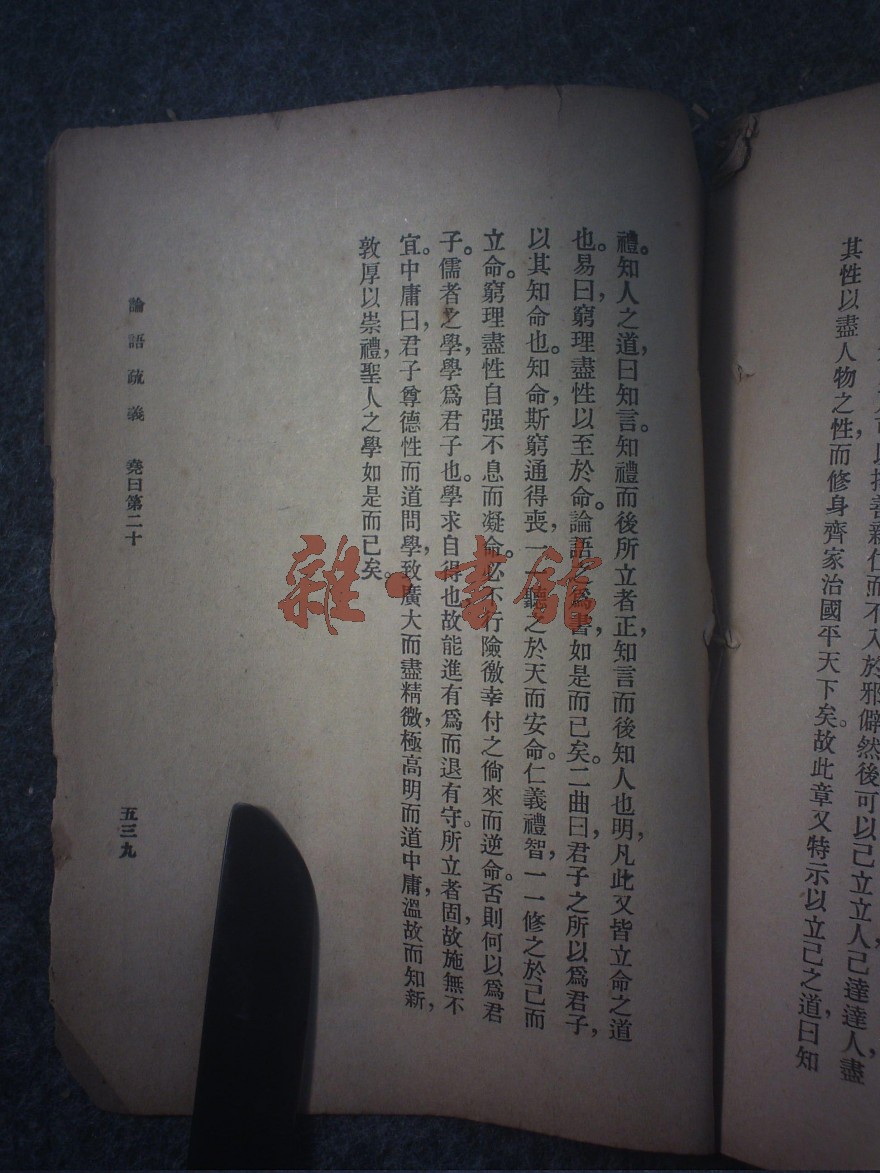 可以擇善新仁而不入於邪僻然後可以己立立人己達達人盡
其性以盡人物之性而修身齊家治國平天下矣。故此章又特示以立己之道曰知
禮。知人之道，曰知言。知禮而後所立者正，知言而後知人也明，凡此又皆立命之道
也。易曰，窮理盡性以至於命。論語之爲書，如是而已矣。二曲曰，君子之所以爲君子，
以其知命也。知命，斯窮通得喪，一一聽之於天而安命。仁義禮智，一一修之於己而
立命。窮理盡性自强不息而凝命。必不行險徼幸付之倘來而逆命。否則何以爲君
子。儒者之學，學爲君子也。學求自得也，故能進有爲而退有守。所立者固，故施無不
宜。中庸曰，君子尊德性而道問學，致廣大而盡精微，極高明而道中庸，溫故而知新，
敦厚以崇禮，聖人之學如是而已矣。
論語疏義 堯曰第二十
五三九
雜·書館